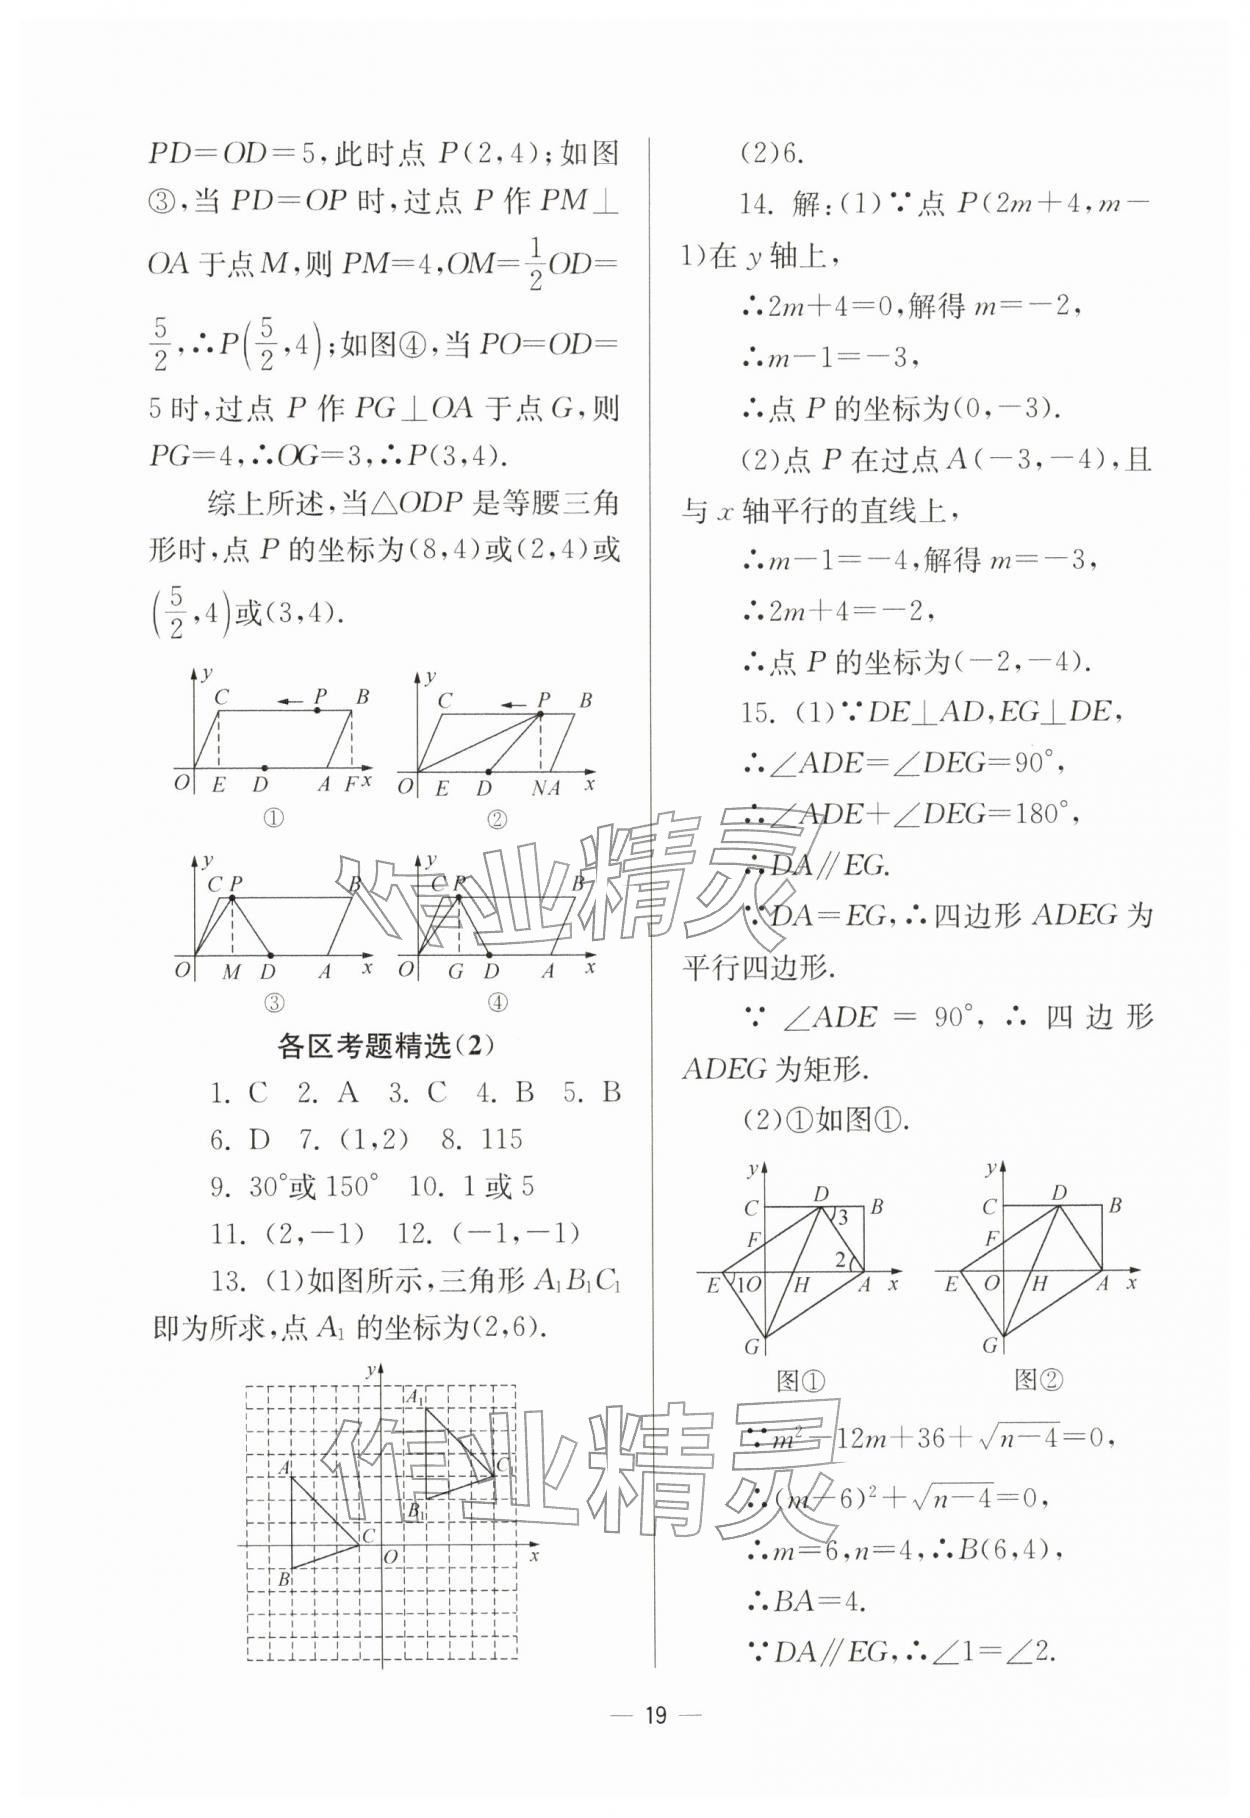 PD=OD=5,此时点 P(2,4);如图
③,当 PD=OP 时,过点 P 作 PM⊥
OA 于点 M,则 PM=4,OM=1/2OD=
5/2,∴P(5/2,4);如图④,当 PO=OD=
5时,过点 P 作 PG⊥OA 于点 G,则
PG=4,∴OG=3,∴P(3,4).
综上所述,当△ODP 是等腰三角
形时,点 P 的坐标为(8,4)或(2,4)或
(5/2,4)或(3,4).
y C P B O E D A F x
①
y C P B O E D N A x
②
y C P B O M D A x
③
y C P B O G D A x
④
各区考题精选(2)
1. C 2. A 3. C 4. B 5. B
6. D 7. (1,2) 8. 115
9. 30°或150° 10. 1或5
11. (2,-1) 12. (-1,-1)
13. (1)如图所示,三角形 A₁B₁C₁
即为所求,点 A₁ 的坐标为(2,6).
y A₁ A C₁ B₁ C O x B
(2)6.
14. 解:(1)∵点 P(2m+4,m-
1)在 y 轴上,
∴2m+4=0,解得 m=-2,
∴m-1=-3,
∴点 P 的坐标为(0,-3).
(2)点 P 在过点 A(-3,-4),且
与 x 轴平行的直线上,
∴m-1=-4,解得 m=-3,
∴2m+4=-2,
∴点 P 的坐标为(-2,-4).
15. (1)∵DE⊥AD,EG⊥DE,
∴∠ADE=∠DEG=90°,
∴∠ADE+∠DEG=180°,
∴DA∥EG.
∵DA=EG,∴四边形 ADEG 为
平行四边形.
∵∠ADE=90°,∴四边形
ADEG 为矩形.
(2)①如图①.
y C D B 3 F 2 E 1 O H A x G
图①
y C D B F E O H A x G
图②
∵m²-12m+36+√(n-4)=0,
∴(m-6)²+√(n-4)=0,
∴m=6,n=4,∴B(6,4),
∴BA=4.
∵DA∥EG,∴∠1=∠2.
— 19 —
作业精灵
作业精灵